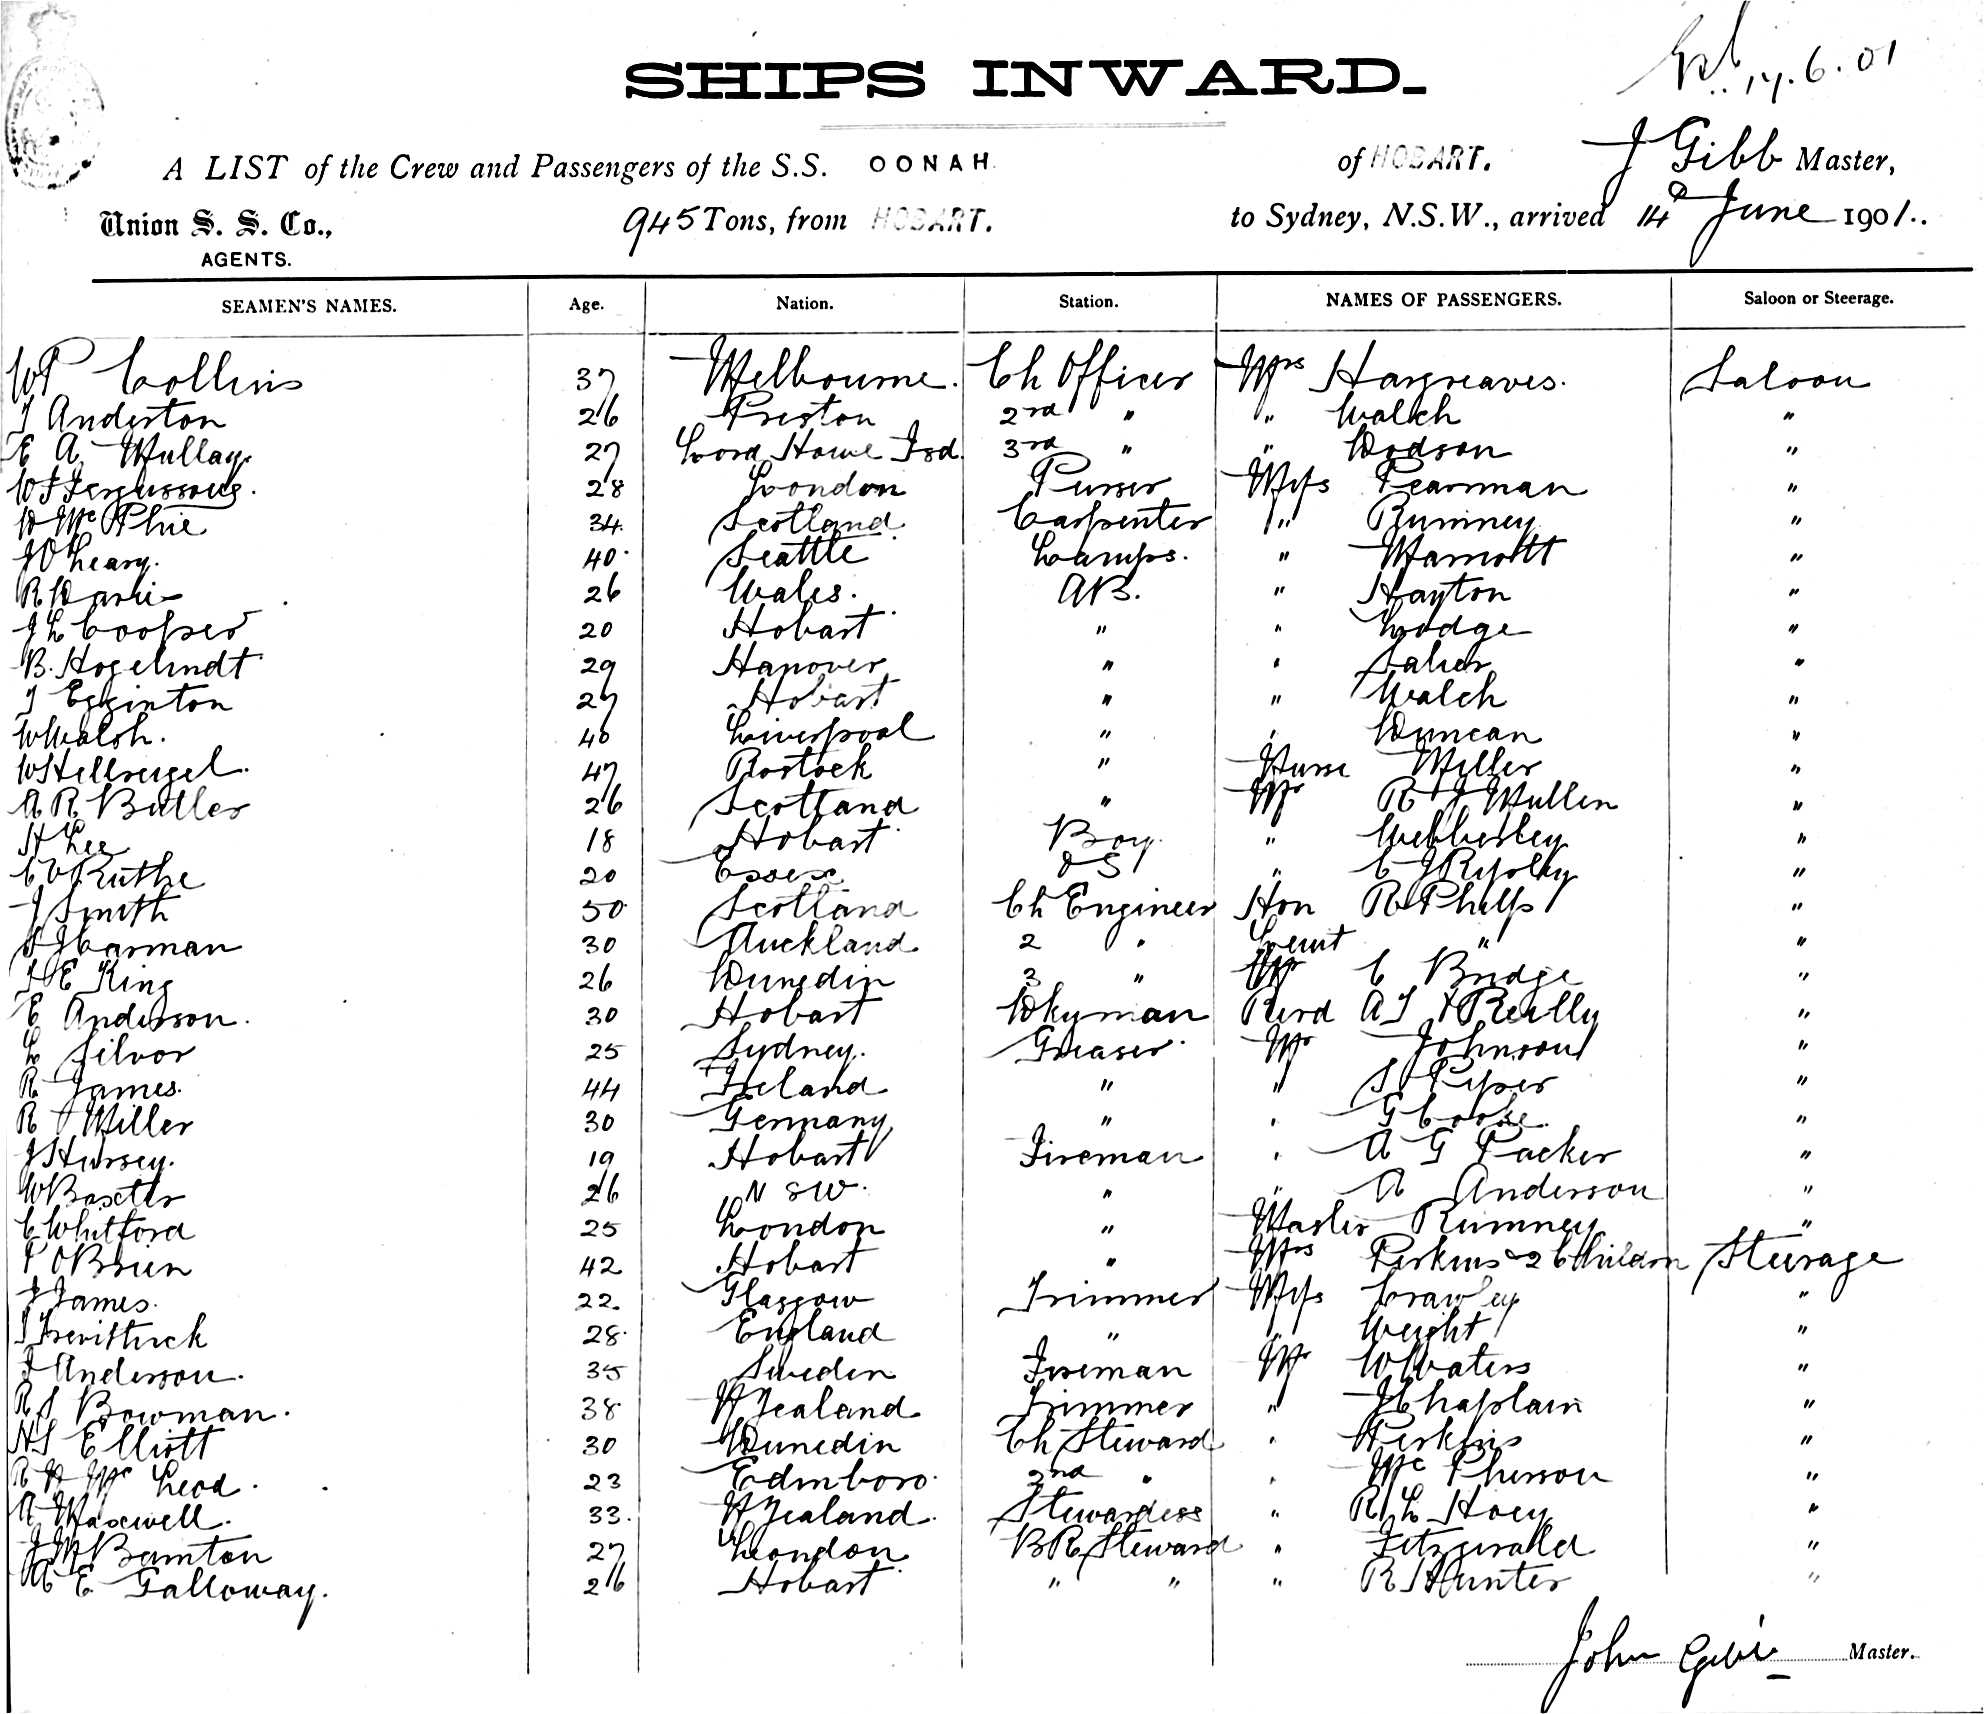 17.6.01
SHIPS INWARD.
A LIST of the Crew and Passengers of the S.S. OONAH of HOBART. J Gibb Master,
Union S. S. Co., 945 Tons, from HOBART. to Sydney, N.S.W., arrived 14 June 1901..
AGENTS.
SEAMEN'S NAMES. Age. Nation. Station. NAMES OF PASSENGERS. Saloon or Steerage.
WP Collins 37 Melbourne. Ch Officer Mrs Hargreaves. Saloon
J Anderton 26 Preston 2nd " " Walch "
E A Mullay. 27 Lord Howe Isd. 3rd " " Dodson "
W J Fergussone. 28 London Purser Miss Pearman "
D Mc Phie 34. Scotland. Carpenter " Rumney "
J O Leary. 40. Seattle Lamps. " Mamott "
R Davie 26 Wales. AB. " Hayton "
J L Cooper 20 Hobart " " Lodge "
B. Hogelindt 29 Hanover " " Salier "
J Egginton 27 Hobart " " Walch "
W Walsh. 40 Liverpool " " Duncan "
W Hellreigel. 47 Rostock " Nurse Miller "
A R Butler 26 Scotland " Mr R J Mullen "
H Lee 18 Hobart Boy. " Webberley "
C V Ruthe 20 Essex O S " C J Ripley "
J Smith 50 Scotland Ch Engineer Hon R Philp "
S J Carman 30 Auckland 2 " Lieut " "
J E King 26 Dunedin 3 " Mr C Bridge "
E Anderson. 30 Hobart Dkyman Revd A J Reilly "
L Silvor 25 Sydney. Greaser Mr Johnson "
R James. 44 Ireland " " S Piper "
R Miller 30 Germany " " G Cooke "
J Hursey. 19 Hobart Fireman " A G Packer "
W Baxter 26 N SW. " " A Anderson "
C Whitford 25 London " Master Rumney "
P OBrien 42 Hobart " Mrs Perkins & 2 Children Steerage
J James. 22. Glasgow Trimmer Miss Crawley "
28. England " " Weight "
J Anderson. 35 Sweden Fireman Mr W Waters "
R S Bowman. 38 N Zealand Trimmer " J Chaplain "
H S Elliott 30 Dunedin Ch Steward " Perkins "
R N Mc Leod. 23 Edinboro. 2nd " " Mc Pherson "
A Maxwell. 33. N Zealand. Stewardess " R L Hoey "
J M Bamton 27 London BR Steward " Fitzgerald "
A E Galloway. 26 Hobart " " " R Hunter "
John Gibb Master.